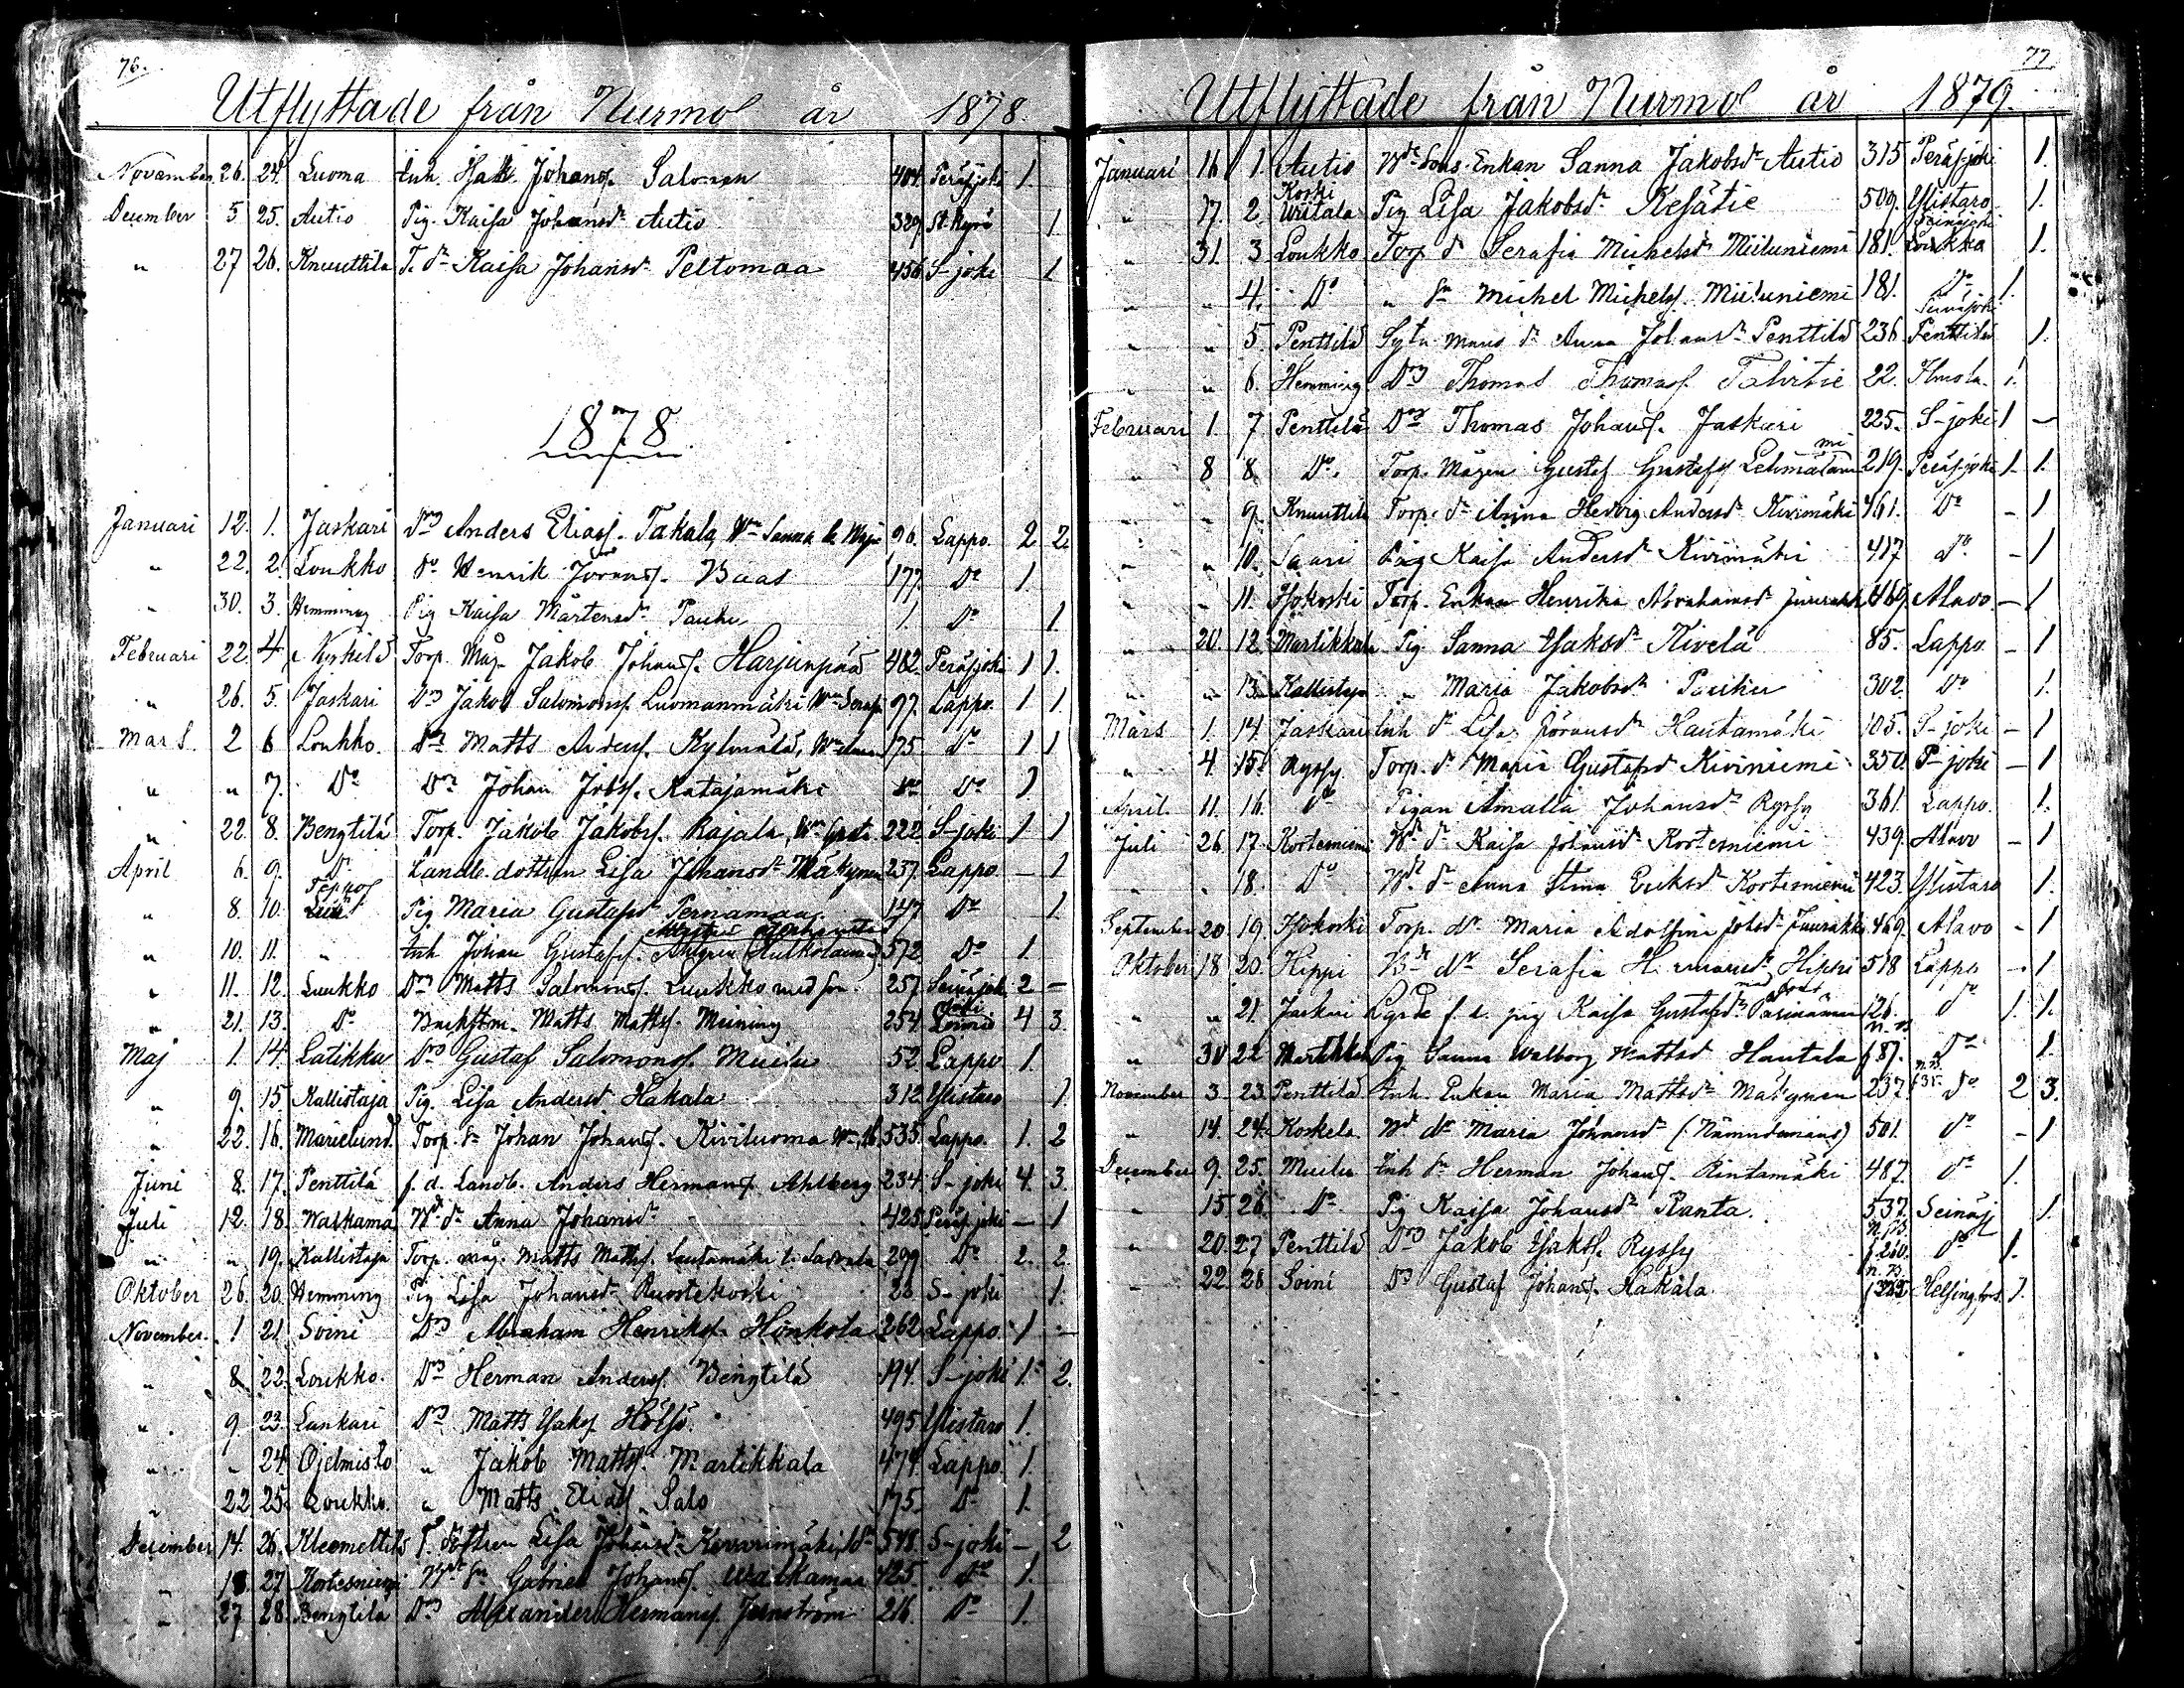 76.
Utflyttade från Nurmo år 1878.
November 26. 24. Luoma Inh. Isak Johanss. Salonen 404. Peräsjoki 1.
December 5 25. Autio Pig. Kaisa Johansdr Autio 329. St. Kyrö 1
" 27 26. Knuuttila T. dr Kaisa Johansdr Peltomaa 456 S-joki 1
1878.
Januari 12. 1. Jaskari Drg Anders Eliass. Takala, 96. Lappo. 2 2.
" 22. 2. Loukko Do Henrik 177. Do 1.
" 30. 3. Hemming Pig Kaisa Mårtensdr Pauhu 1. Do 1.
Februari 22. 4 Nyrhilä Torp. Måg. Jakob Johanss. Harjunpää 482. Peräsjoki 1 1.
" 26. 5. Jaskari Drg Jakob Salomonss. Luomanmäki 97. Lappo. 1 1.
Mars. 2 6 Loukko. Drg Matts Anderss. Kylmälä, 175. Do 1 1
" " 7. Do Drg Johan Jobss. Katajamäki Do Do 1
" 22. 8. Bengtilä Torp. Jakob Jakobss. Rajala, 222. S-joki 1 1
April 6. 9. Do Landb. dottren Lisa Johansdr Mäkynen 237. Lappo — 1
" 8. 10. Teppo Pig Maria Gustafsdr Pernamaa 147 Do 1.
" 10. 11. " Inh Johan Gustafss. Ahlgren 572 Do 1.
" 11. 12. Luukko Drg Matts Salomonss. Luukko med son 257. Seinäjoki 2 —
" 21. 13. Do Backstm. Matts Mattss. Meining 254. 4 3.
Maj 1. 14. Latikka Drg Gustaf Salomonss. Muilu 52 Lappo 1.
" 9. 15. Kallistaja Pig. Lisa Andersdr Hakala 312 Ylistaro 1
" 22. 16. Marielund. Torp. Sn Johan Johanss. Kiviluoma 535. Lappo. 1. 2
Juni 8. 17. Penttilä f. d. Landb. Anders Hermanss. Ahlberg 234. S-joki 4. 3.
Juli 12. 18. Walkama Wdr dr Anna Johansdr 425. Peräsjoki — 1
" " 19. Kallistaja Torp. måg. Matts Mattss. Lautamäki 299 Do 2. 2.
Oktober 26. 20. Hemming Pig Lisa Johansdr Ruostekoski 28 S-joki 1.
November. 1 21. Soini Drg Abraham Henrikss. Honkola 262 Lappo. 1 —
" 8 22. Loukko. Drg Herman Anderss. Bengtilä 194. S-joki 1. 2.
" 9 23. Lankari Drg Matts Isaks. Hölsö 495 Ylistaro 1.
" " 24. Ojelmisto " Jakob Mattss. Martikkala 474 Lappo. 1.
" 22 25. Loukko. " Matts Eliass. Salo 175. Do 1.
December 14. 26. Kleemettilä T. dottren Lisa Johansdr 548. S-joki — 2
" 18. 27 Kortesniemi Gabriel Johanss. Walkamaa 425. Do 1.
" 27 28. Bengtilä Drg Alexander Hermanss. Jernström 216. Do 1.
77.
Utflyttade från Nurmo år 1879.
Januari 16 1. Autio Enkan Sanna Jakobsdr Autio 315 Peräsjoki 1.
" 17. 2. Koski Uritala Pig Lisa Jakobsdr Kesätie 509. Ylistaro 1.
" 31. 3 Loukko Torp. dr Serafia Michelsdr Miiluniemi 181. Seinäjoki Loukko 1.
" " 4. Do " Sn Michel Michelss. Miiluniemi 181. Do 1.
" " 5. Penttilä Anna Johansdr Penttilä 236 Seinäjoki Penttilä 1.
" " 6. Hemming Drg Thomas Thomass. Talvitie 22. Ilmola. 1.
Februari 1. 7. Penttilä Drg Thomas Johanss. Jaskari 225. S-joki 1 —
" 8 8 Do. Torp. Mågen Gustaf Gustafss. 219. Peräsjoki 1. 1.
" " 9. Knuuttila Torp. dr Anna Hedvig Andersdr Kivimäki 461. Do - 1
" " 10. Saari Pig Kaisa Andersdr Kivimäki 417 Do. - 1
" " 11. Hjokoski Torp. Enkan Henrika Abrahamsdr Juurakko 469. Alavo. — 1
" 20. 12. Martikkala Pig Sanna Isaksdr Kivelä 85. Lappo. - 1
" " 13. Kallistaja " Maria Jakobsdr Pauhu 302. Do 1.
Mars 1. 14. Jaskari Inh dr Lisa Göransdr Hautamäki 105. S-joki - 1
" 4. 15. Ryssy. Torp. dr Maria Gustafsdr Kiviniemi 350. P-joki - 1
April. 11. 16. Do Pigan Amalia Johansdr Ryssy 361. Lappo. 1.
Juli 26 17. Kortesniemi Wdr dr Kaisa Johansdr Kortesniemi 439. Alavo - 1
" " 18. Do Wdr dr Anna Stina Eriksdr Kortesniemi 423. Ylistaro 1.
September 20 19. Hjokoski Torp. dr Maria Adolfina Johsdr Juurakko 469. Alavo - 1
Oktober 18 20. Hippi Bdr dr Serafia Hermansdr Hippi 518 Lappo - 1
" " 21. Jaskari f. d. pig Kaisa Gustafsdr 126. Do 1. 1.
" 30 22 Martikkala Pig Sanna Walborg Mattsdr Hautala N.B. f 87. Do 1.
November 3. 23. Penttilä Inh. Enkan Maria Mattsdr Mäkynen 237. N.B. f 35. Do 2 3.
" 14. 24. Koskela. Wdr dr Maria Johansdr (Nämndemans) 501. Do - 1
December 9. 25. Muilu Inh Sn Herman Johanss. Rintamäki 487. Do 1.
" 15. 26. Do Pig Kaisa Johansdr Ranta. 537. Seinäj 1.
" 20. 27 Penttilä Drg Jakob Isaks. Ryssy N.B. f 260. Do 1.
" 22. 28 Soini Drg Gustaf Johanss. Hakala. N.B. Helsingfors. 1.